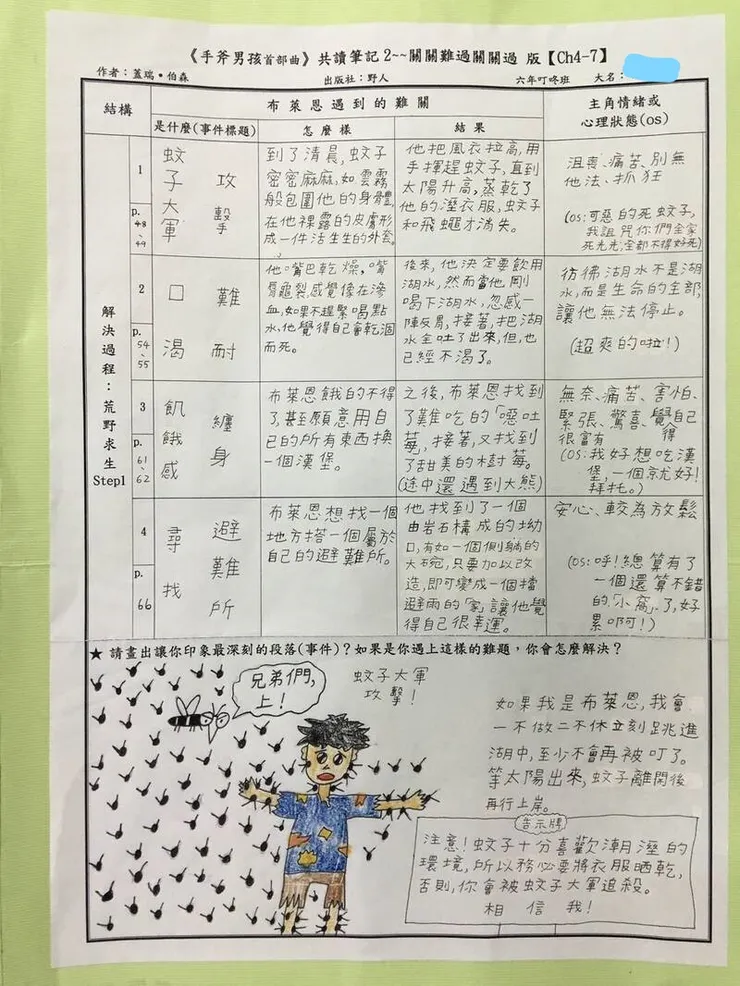 《手斧男孩首部曲》共讀筆記2~~關關難過關關過 版【Ch4-7】
作者：蓋瑞•伯森
出版社：野人
六年叮咚班
大名：
結構
布萊恩遇到的難關
主角情緒或
心理狀態(os)
是什麼(事件標題)
怎麼樣
結果
解決過程：荒野求生
Step1
1
p.
48
~
49
蚊子大軍
攻擊
到了清晨,蚊子
密密麻麻,如雲霧
般包圍他的身體,
在他裸露的皮膚形
成一件活生生的外套。
他把風衣拉高,用
手揮趕蚊子,直到
太陽升高,蒸乾了
他的溼衣服,蚊子
和飛蠅才消失。
沮喪、痛苦、別無
他法、抓狂
(os:可惡的死蚊子,
我詛咒你們全家
死光光,全都不得好死)
2
p.
54
~
55
口渴
難耐
他嘴巴乾燥,嘴
唇龜裂,感覺像在滲
血,如果不趕緊喝點
水,他覺得自己會乾涸
而死。
後來,他決定要飲用
湖水,然而當他剛
喝下湖水,忽感一
陣反胃,接著,把湖
水全吐了出來,但,也
已經不渴了。
彷彿湖水不是湖
水,而是生命的全部,
讓他無法停止。
(超爽的啦!)
3
p.
61
~
62
飢餓感
纏身
布萊恩餓的不得
了,甚至願意用自
己的所有東西換
一個漢堡。
之後,布萊恩找到
了難吃的「噁吐
莓」,接著,又找到
了甜美的樹莓。
(途中還遇到大熊)
無奈、痛苦、害怕、
緊張、驚喜、覺得自己
很富有
(OS:我好想吃漢
堡,一個就好!
拜托。)
4
p.
66
尋找
避難所
布萊恩想找一個
地方搭一個屬於
自己的避難所。
他找到了一個
由岩石構成的坳
口,有如一個側躺的
大碗,只要加以改
造,即可變成一個擋
避雨的「家」讓他覺
得自己很幸運。
安心、較為放鬆
(OS:呼!總算有了
一個還算不錯
的「小窩」了,好
累啊!)
★ 請畫出讓你印象最深刻的段落(事件)？如果是你遇上這樣的難題，你會怎麼解決？
兄弟們,
上!
蚊子大軍
攻擊!
如果我是布萊恩,我會
一不做二不休立刻跳進
湖中,至少不會再被叮了。
等太陽出來,蚊子離開後
再行上岸。
告示牌
注意!蚊子十分喜歡潮溼的
環境,所以務必要將衣服晒乾,
否則,你會被蚊子大軍追殺。
相信我!